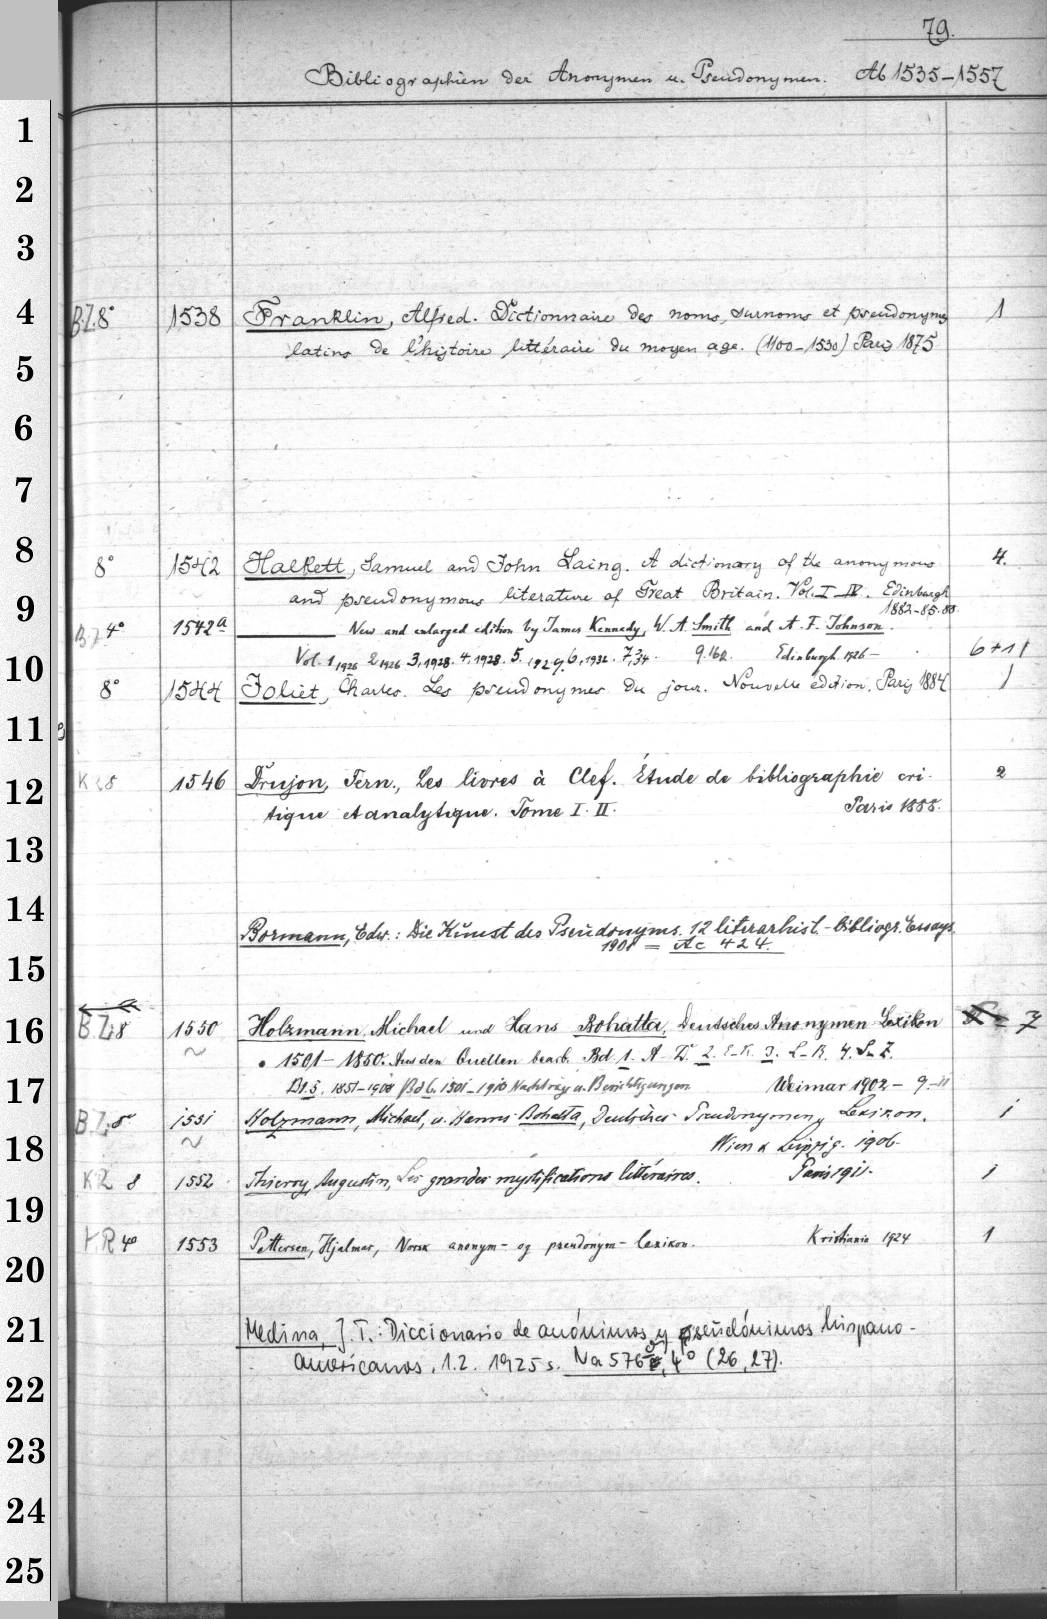 79.
Bibliographien der Anonymen u. Pseudonymen. Ab 1535-1557
1
2
3
4 B.Z. 8° 1538 Franklin, Alfred. Dictionnaire des noms, surnoms et pseudonymes 1
latins de l'histoire littéraire du moyen age. (1100-1530) Paris 1875
5
6
7
8 8° 1542 Halkett, Samuel and John Laing. A dictionary of the anonymous 4.
and pseudonymous literature of Great Britain. Vol. I-IV. Edinburgh
9 1882-85.88.
B.Z. 4° 1542a New and enlarged edition by James Kennedy, W. A. Smith and A. F. Johnson.
10 Vol. 1,1926 2,1926 3,1928. 4,1928. 5,1929, 6,1932. 7,34. Edinburgh 1926- 6+1
8° 1544 Joliet, Charles. Les pseudonymes du jour. Nouvelle édition. Paris 1884 1
11
12 8 1546 Drujon, Fern., Les livres à Clef. Étude de bibliographie cri- 2
tique et analytique. Tome I. II. Paris 1888.
13
14 Bormann, Edw.: Die Kunst des Pseudonyms. 12 literarhist.-bibliogr. Essays.
1901 = Ac 424.
15
16 B.Z. 8 1550 Holzmann, Michael und Hans Bohatta, Deutsches Anonymen-Lexikon 7
1501-1850. Aus den Quellen bearb. Bd 1. A-D. 2. E-K. 3. L-R. 4. S-Z.
17 Bd. 5. 1851-1908 Bd 6. 1501-1910 Nachträge u. Berichtigungen Weimar 1902-
B.Z. 8° 1551 Holzmann, Michael, u. Hanns Bohatta, Deutsches Pseudonymen-Lexikon. 1
18 Wien & Leipzig. 1906.
8 1552 Thierry, Augustin, Les grandes mystifications littéraires. Paris 1911. 1
19
4° 1553 Pettersen, Hjalmar, Norsk anonym- og pseudonym-lexikon. Kristiania 1924 1
20
21 Medina, J. T.: Diccionario de anónimos y pseudónimos hispano-
americanos. 1.2. 1925 s. Na 576, 4° (26,27).
22
23
24
25